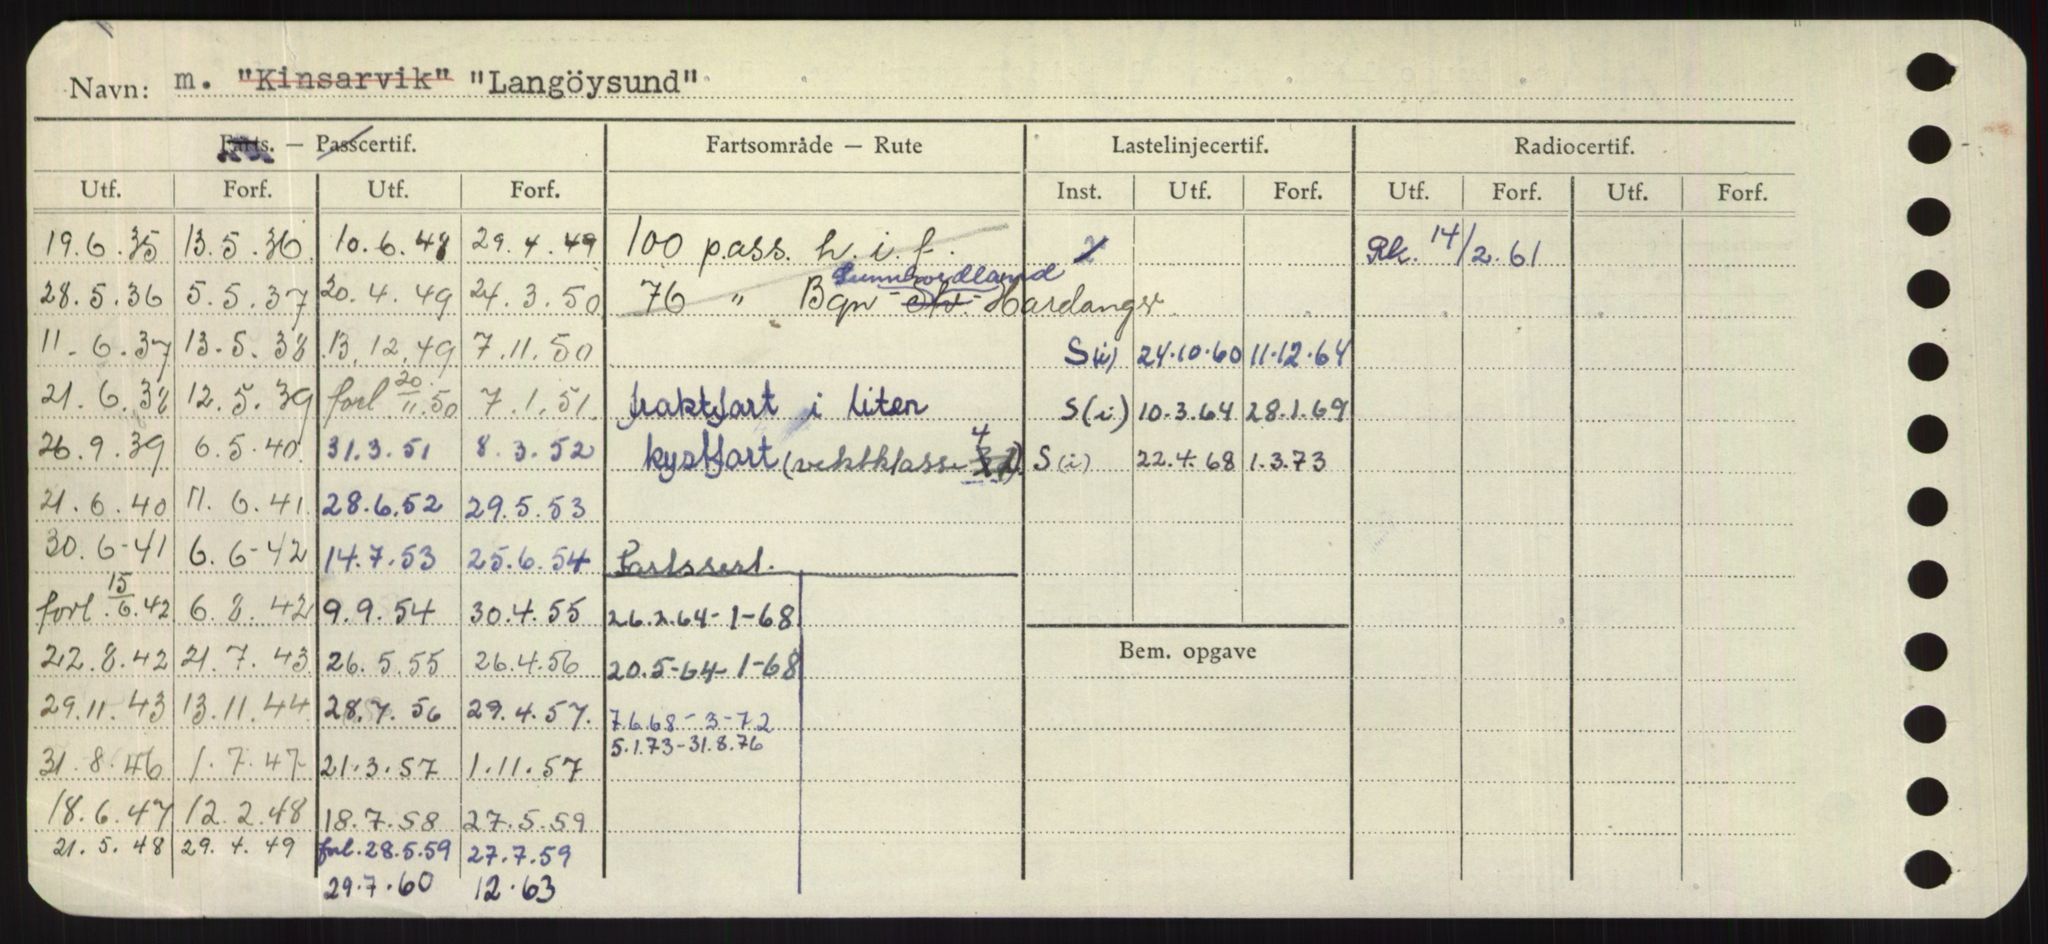 Navn: m. "Kinsarvik" "Langöysund"
Farts. — Passcertif. Fartsområde — Rute Lastelinjecertif. Radiocertif.
Utf. Forf. Utf. Forf. Inst. Utf. Forf. Utf. Forf. Utf. Forf.
19.6.35 13.5.36 10.6.48 29.4.49 100 pass. h.i.f. Rk. 14/2.61
Sunnhordland
28.5.36 5.5.37 20.4.49 24.3.50 76 " Bgn - Hardanger
11.6.37 13.5.38 13.12.49 7.11.50 S(i) 24.10.60 11.12.64
21.6.38 12.5.39 forl 20/11.50 7.1.51 fraktfart i liten S(i) 10.3.64 28.1.69
26.9.39 6.5.40 31.3.51 8.3.52 kystfart (vektklasse 4) S(i) 22.4.68 1.3.73
21.6.40 11.6.41 28.6.52 29.5.53
30.6-41 6.6-42 14.7.53 25.6.54 Fartssert.
forl 15/6.42 6.8.42 9.9.54 30.4.55 26.2.64-1-68
22.8.42 21.7.43 26.5.55 26.4.56 20.5-64-1-68 Bem. opgave
29.11.43 13.11.44 28.7.56 29.4.57. 7.6.68-3-72
5.1.73-31.8.76
31.8.46 1.7.47 21.3.57 1.11.57
18.6.47 12.2.48 18.7.58 27.5.59
21.5.48 29.4.49 forl. 28.5.59 27.7.59
29.7.60 12.63